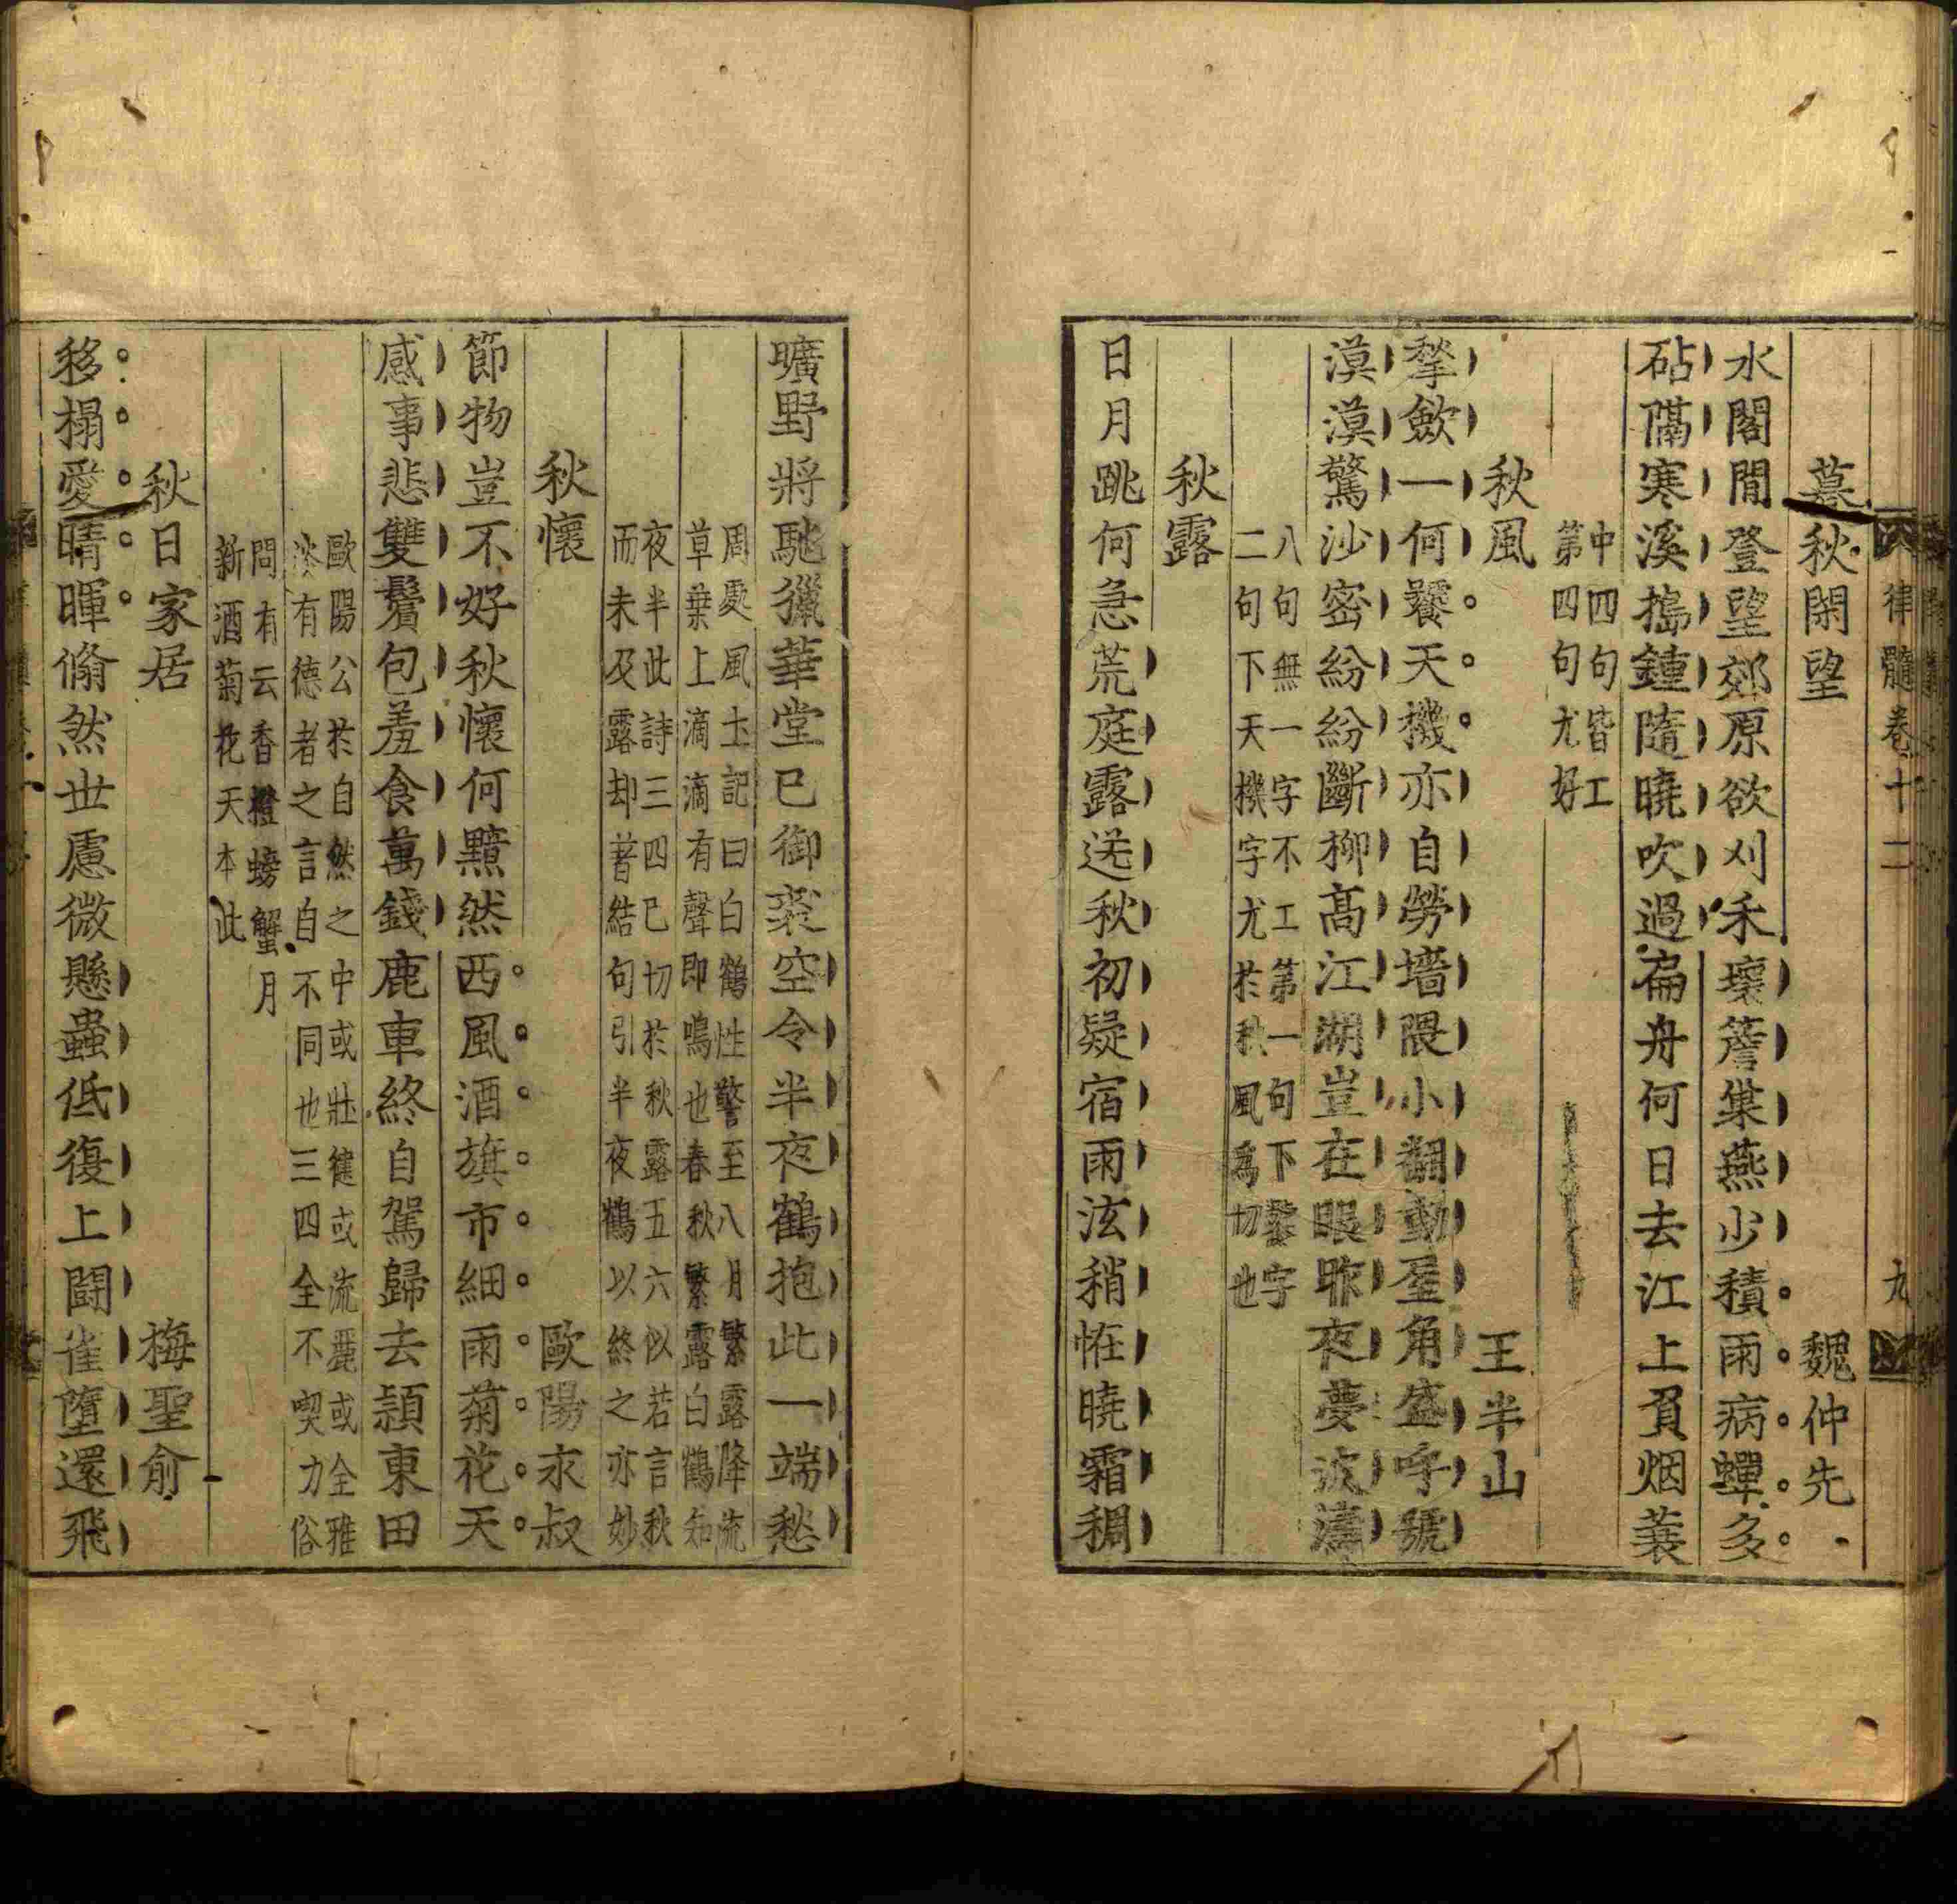 律髓卷十二 九
暮秋閑望 魏仲先
水閣閒登望郊原欲刈禾壞簷巢燕少積雨病蟬多
砧隔寒溪搗鍾隨曉吹過扁舟何日去江上負烟蓑
中四句皆工
第四句尤好
秋風 王半山
揫斂一何饕天機亦自勞墻隈小翻動屋角盛呼號
漠漠驚沙密紛紛斷柳高江湖豈在眼昨夜夢波濤
八句無一字不工第一句下揫字
二句下天機字尤於秋風爲切也
秋露
日月跳何急荒庭露送秋初疑宿雨泫稍恠曉霜稠
曠野將馳獵華堂已御裘空令半夜鶴抱此一端愁
周處風土記曰白鶴性警至八月繁露降流
草葉上滴滴有聲即鳴也春秋繁露白鶴知
夜半此詩三四已切於秋露五六似若言秋
而未及露却著結句引半夜鶴以終之亦妙
秋懷 歐陽永叔
節物豈不好秋懷何黯然西風酒旗市細雨菊花天
感事悲雙鬢包羞食萬錢鹿車終自駕歸去頴東田
歐陽公於自然之中或壯健或流麗或全雅
淡有德者之言自不同也三四全不喫力俗
問有云香橙螃蟹月
新酒菊花天本此
秋日家居 梅聖俞
移榻愛晴暉翛然世慮微懸蟲低復上鬪雀墮還飛